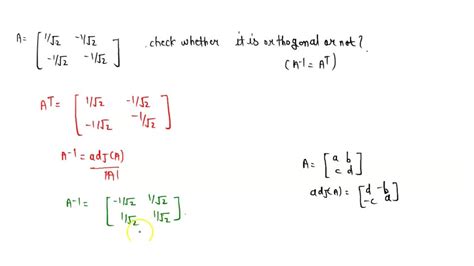 A= [ 1/√2 -1/√2 check whether it is orthogonal or not?
-1/√2 -1/√2 ] (A⁻¹ = Aᵀ)
Aᵀ= [ 1/√2 -1/√2
-1/√2 -1/√2 ]
A⁻¹ = adj(A)
|A|
A = [ a b
c d ]
adj(A) = [ d -b
-c a ]
A⁻¹ = [ -1/√2 1/√2
1/√2 1/√2 ].